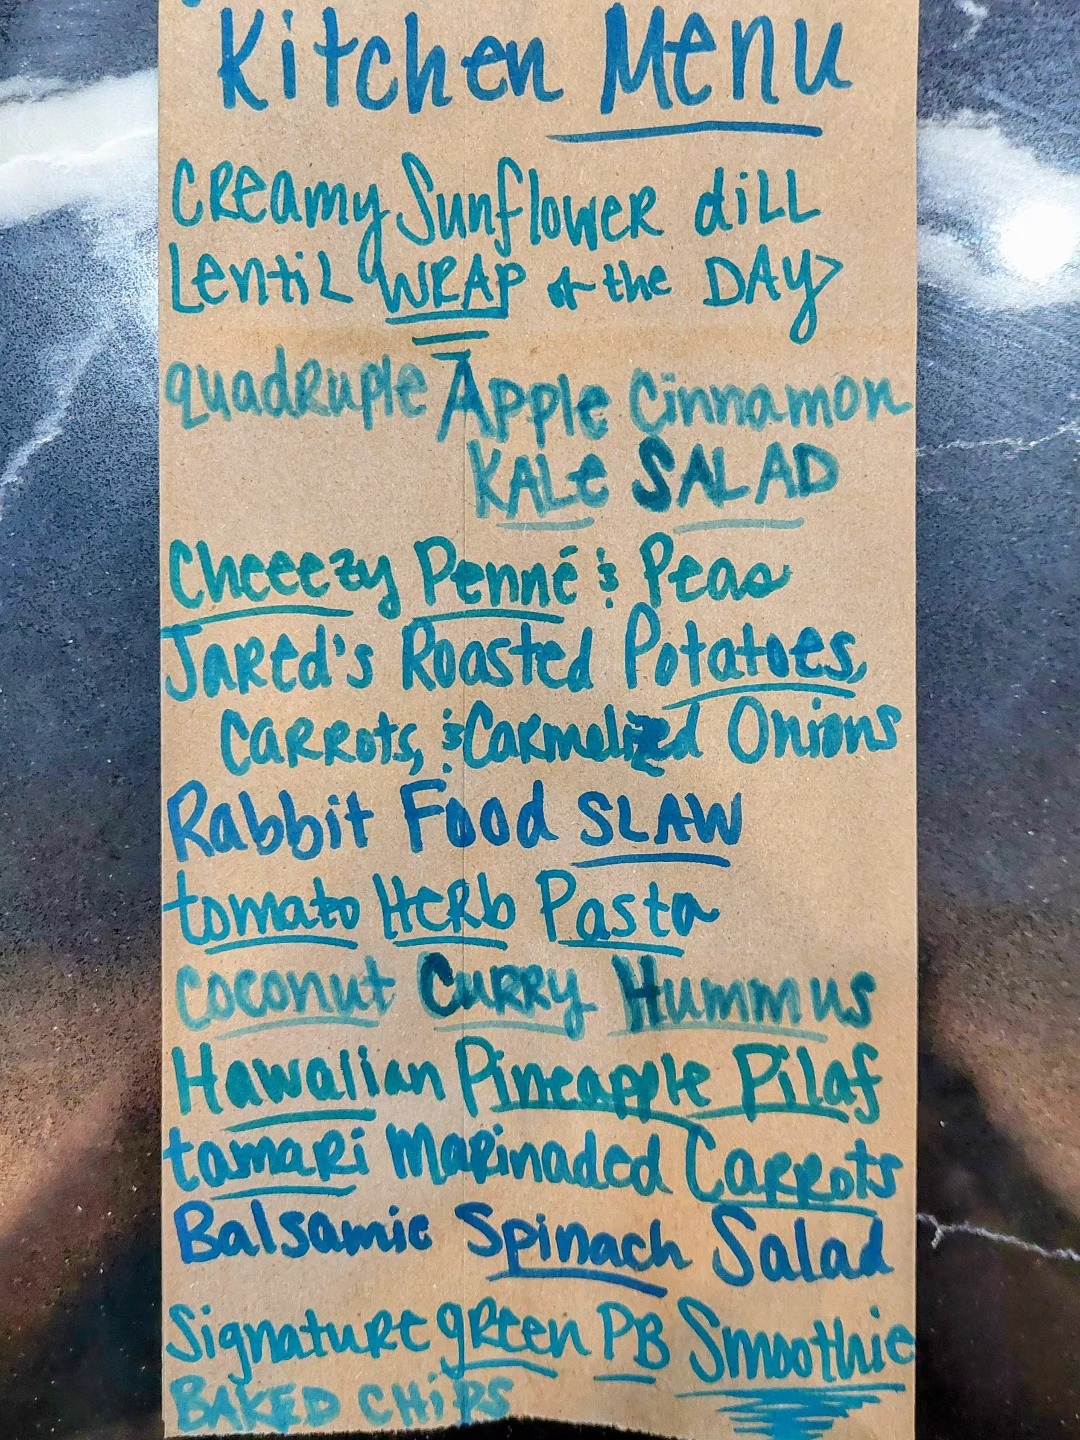 Kitchen Menu
Creamy Sunflower dill
Lentil WRAP of the DAY
quadruple Apple Cinnamon
KALE SALAD
Cheeezy Penné & Peas
Jared's Roasted Potatoes,
Carrots, & Carmelized Onions
Rabbit Food SLAW
tomato Herb Pasta
Coconut Curry Hummus
Hawaiian Pineapple Pilaf
tamari Marinaded Carrots
Balsamic Spinach Salad
Signature green PB Smoothie
BAKED CHiPS